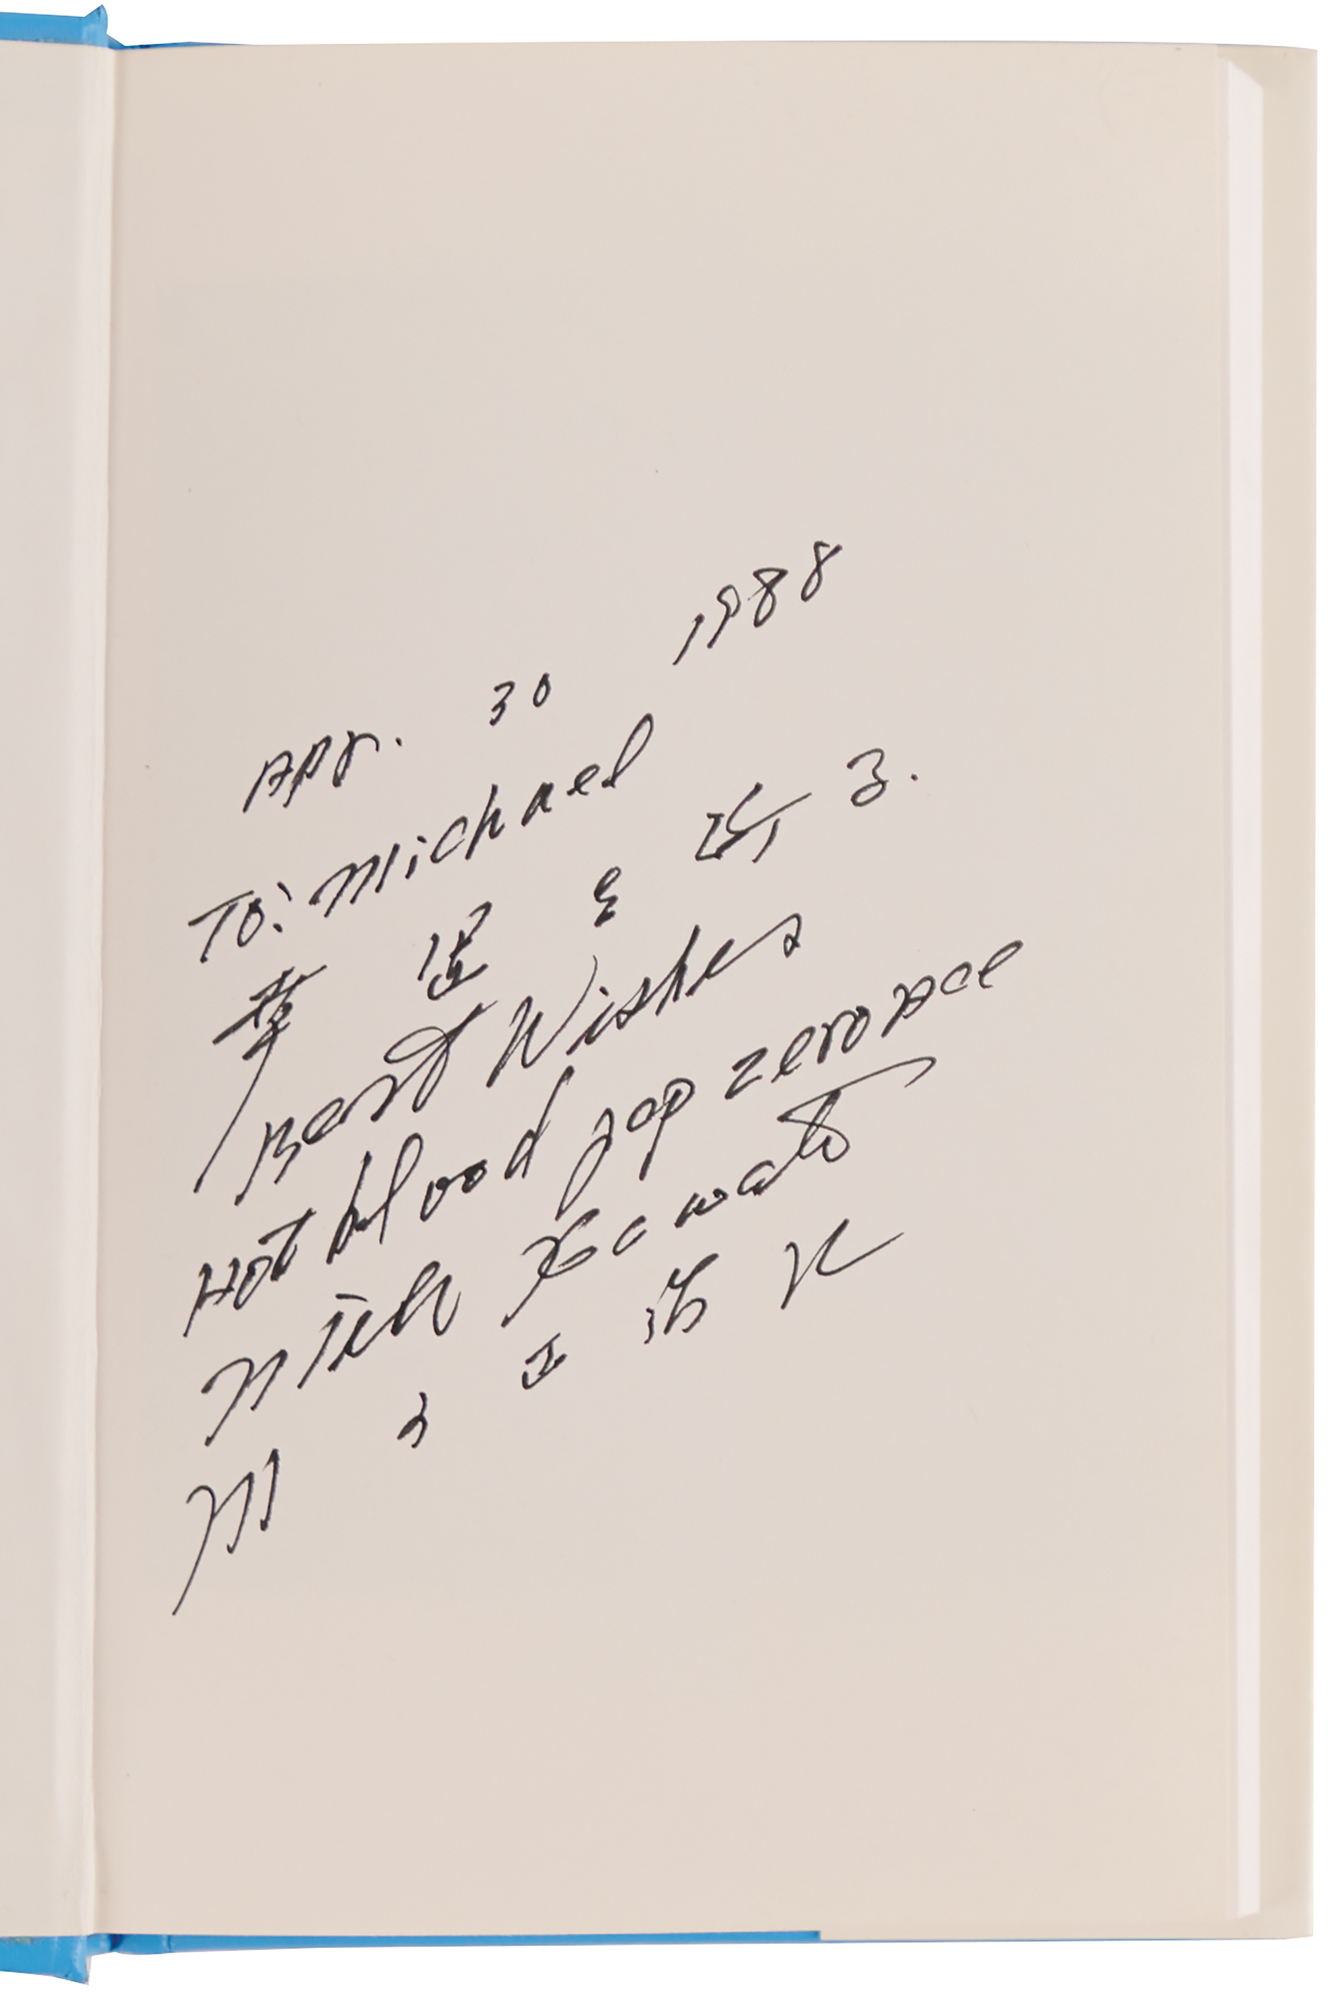 Apr. 30 1988
To: Michael
幸運を祈る.
Best Wishes
Hot blood Jap zero ace
Kawato
川 正治